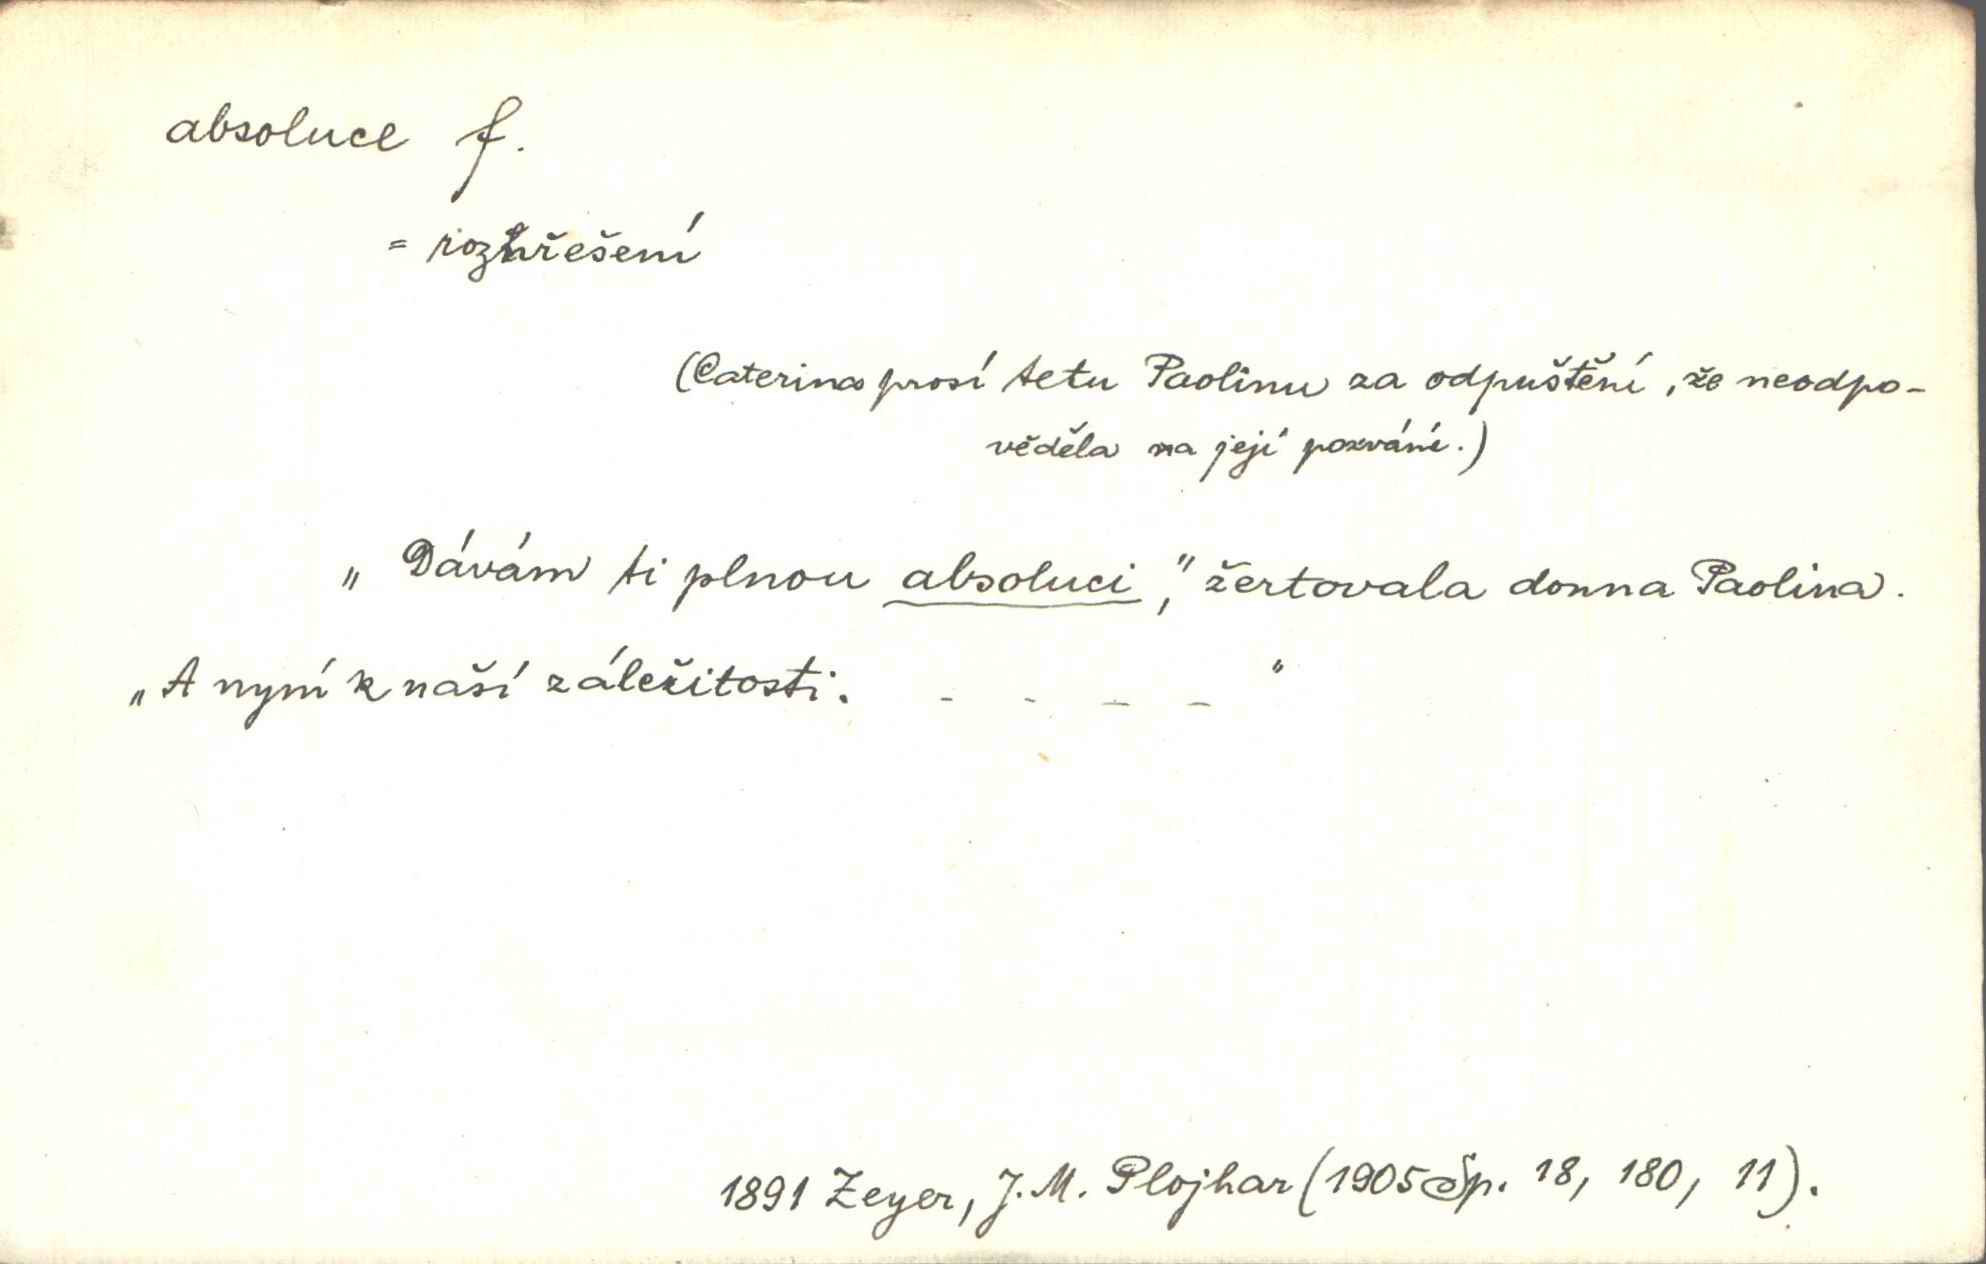 absoluce f.
= rozhřešení
(Caterina prosí tetu Paolinu za odpuštění, že neodpo-
věděla na její pozvání.)
„Dávám ti plnou absoluci,“ žertovala donna Paolina.
„A nyní k naší záležitosti. - - - - “
1891 Zeyer, J. M. Plojhar (1905 Sp. 18, 180, 11).